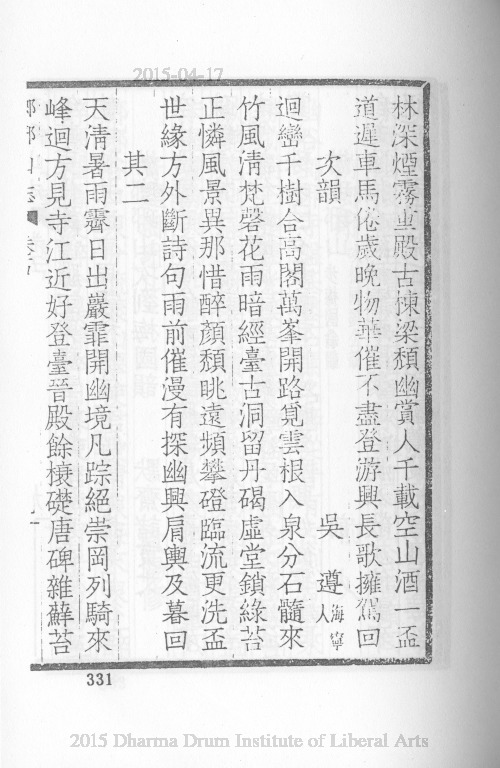 2015-04-17
林深煙霧重殿古棟梁頹幽賞人千載空山酒一盃
道遲車馬倦歲晚物華催不盡登游興長歌擁駕回
次韻 吳遵海寧人
迴巒千樹合高閣萬峯開路覓雲根入泉分石髓來
竹風清梵磬花雨暗經臺古洞留丹碣虛堂鎖綠苔
正憐風景異那惜醉顏頹眺遠頻攀磴臨流更洗盃
世緣方外斷詩句雨前催漫有探幽興肩輿及暮回
其二
天清暑雨霽日出巖霏開幽境凡踪絕崇岡列騎來
峰迴方見寺江近好登臺晉殿餘榱礎唐碑雜蘚苔
331
2015 Dharma Drum Institute of Liberal Arts